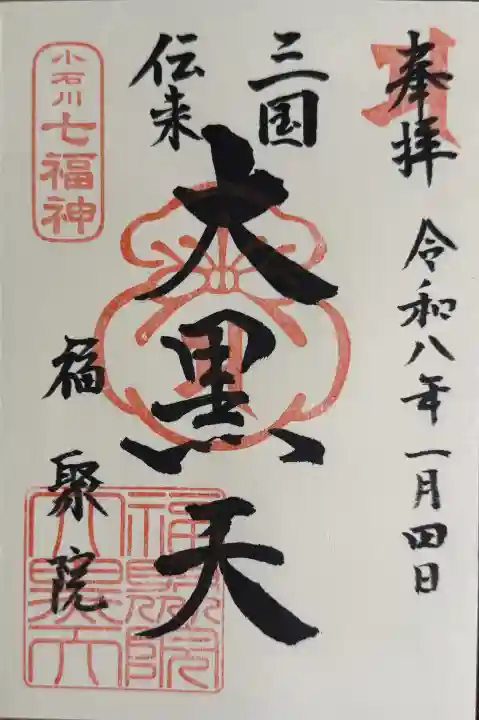 奉拝
令和八年一月四日
三国
伝来
大黒天
小石川
七福神
福聚院
福聚院
大黒天